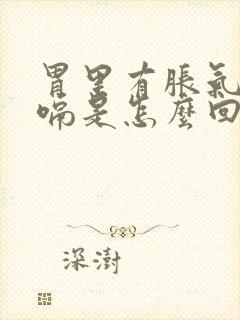 胃里有脹氣
嗝是怎麼回
深澍